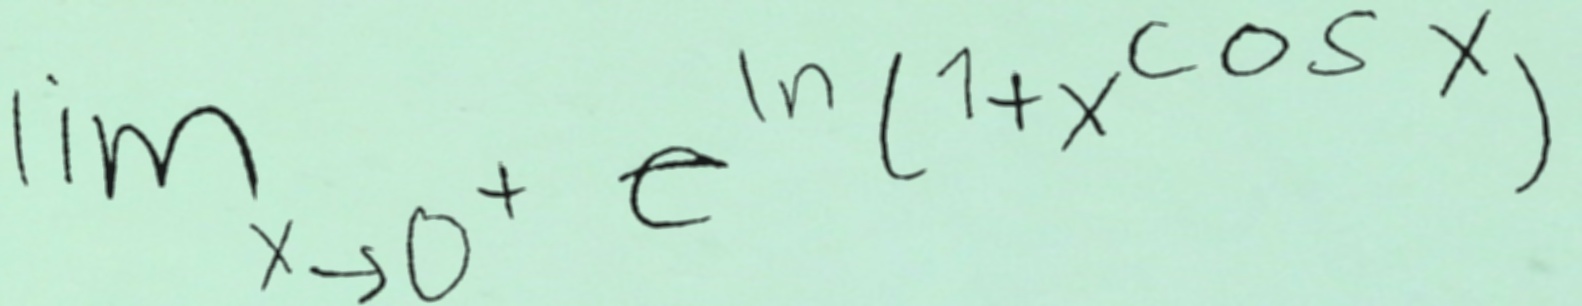 \lim_{x \to 0^+} e^{\ln(1+x^{\cos x})}